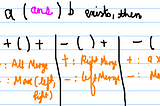 a (ans) b exists, then
+ ( ) + | - ( ) - | +
: All Merge | + : Right Merge | + : a
- : Max (left, right) | - : Left Merge | -